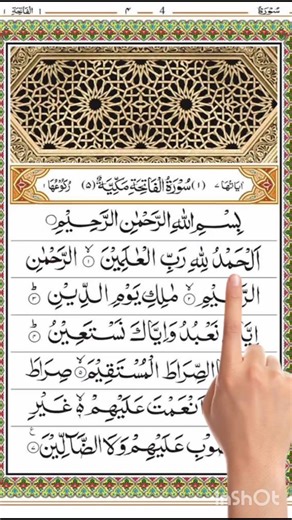 سُوْرَة 4 ۴ اَلْفَاتِحَة ١
اٰيَاتُهَا ٧ (١) سُوْرَةُ الْفَاتِحَةِ مَكِّيَّةٌ (٥) رُكُوْعُهَا
بِسْمِ اللهِ الرَّحْمٰنِ الرَّحِيْمِ
اَلْحَمْدُ لِلّٰهِ رَبِّ الْعٰلَمِيْنَ ۙ١ الرَّحْمٰنِ
ۙ٢ مٰلِكِ يَوْمِ الدِّيْنِ ؕ٣
نَعْبُدُ وَاِيَّاكَ نَسْتَعِيْنُ ؕ٤
الصِّرَاطَ الْمُسْتَقِيْمَ ۙ٥ صِرَاطَ
اَنْعَمْتَ عَلَيْهِمْ ۙ٦ غَيْرِ
عَلَيْهِمْ وَلَا الضَّآلِّيْنَ ٧
InShOt